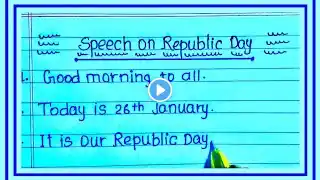 Speech on Republic Day
Good morning to all.
Today is 26th January.
It is Our Republic Day